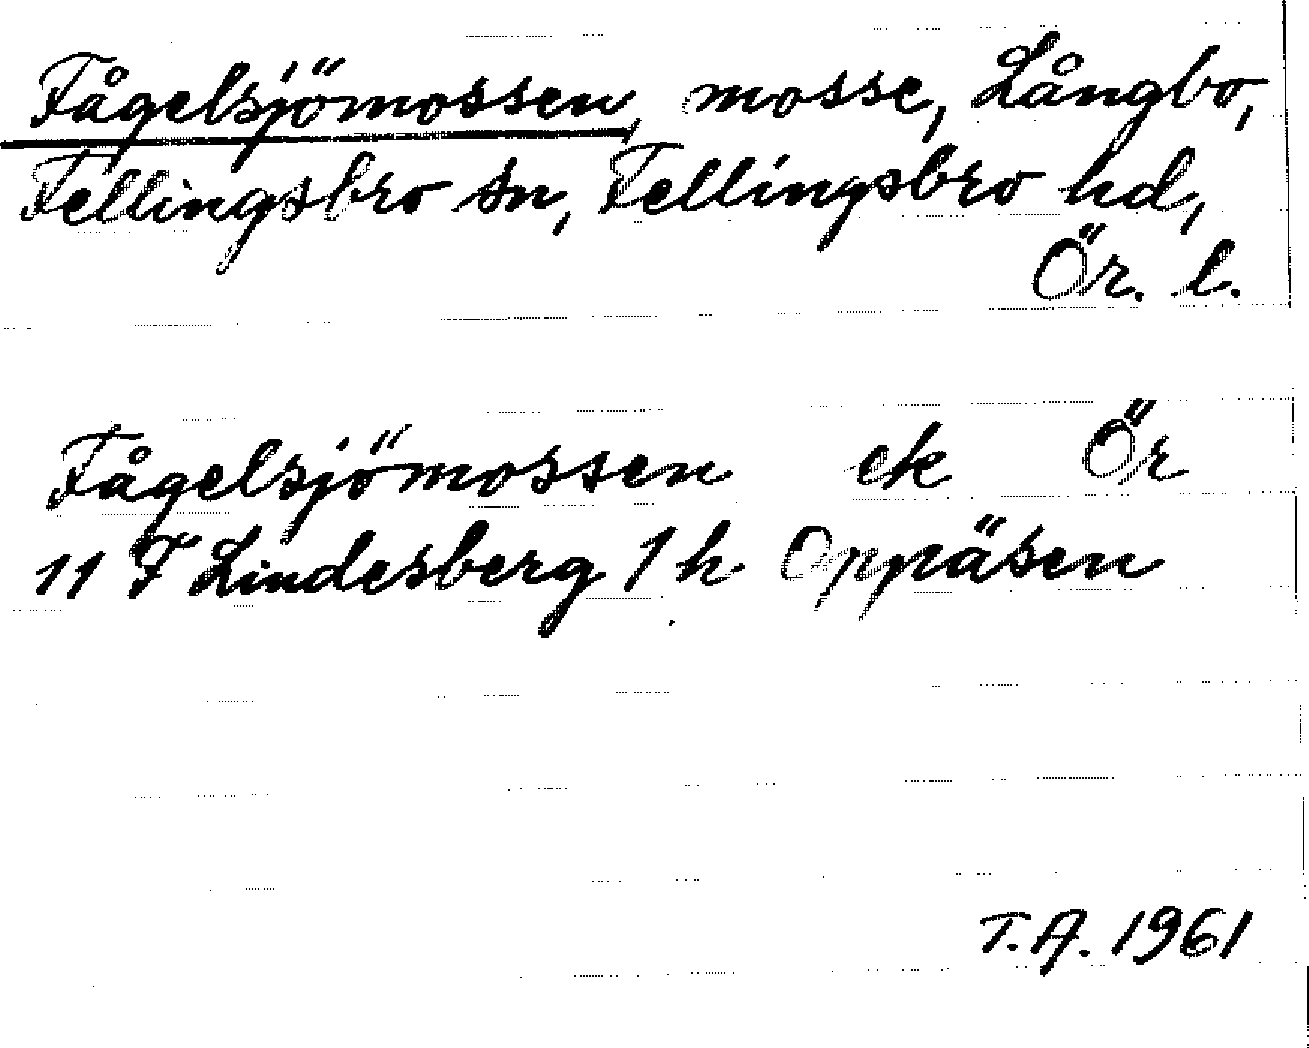 Fågelsjömossen, mosse, Långbo,
Fellingsbro sn, Fellingsbro hd,
Ör. l.
Fågelsjömossen ek Ör
11 F Lindesberg 1 h Oppåsen
T.A. 1961